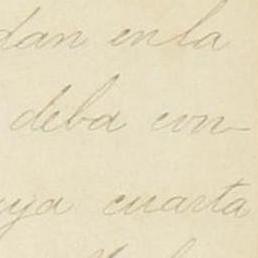 dan en la
deba con-
uya cuarta